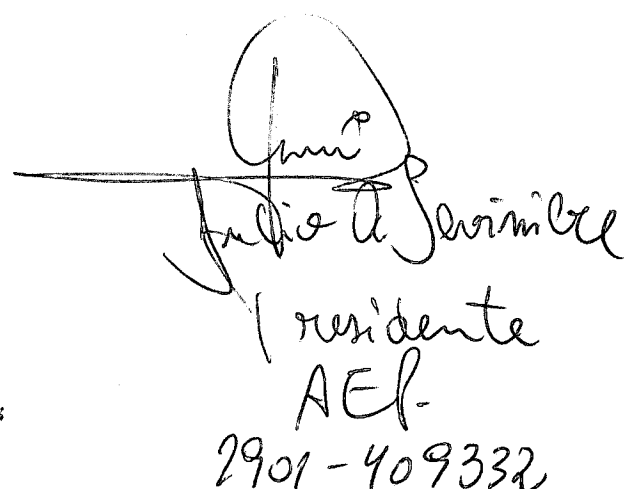 Julio A. Sevinilre
Presidente
AEP.
2901-409332